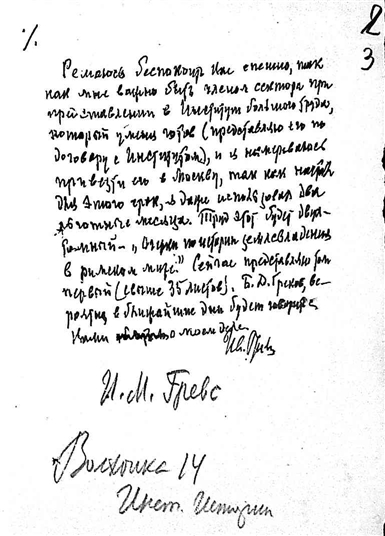 %
2
3
Решаюсь беспокоить Вас спешно, так
как мне важно быть членом сектора при
представлении в Институт большого труда,
который у меня готов (представляю его по
договору с Институтом), и я намереваюсь
привезти его в Москву, так как
для этого срок, я даже использовал два
льготные месяца. Труд этот будет двух-
томный – „Очерки по истории землевладения
в римском мире." Сейчас представляю том
первый (свыше 35 листов). Б. Д. Греков, ве-
роятно, в ближайшие дни будет говорить с
Вами о моем деле.
Ив. Гревс
И. М. Гревс
Волхонка 14
Инст. Истории